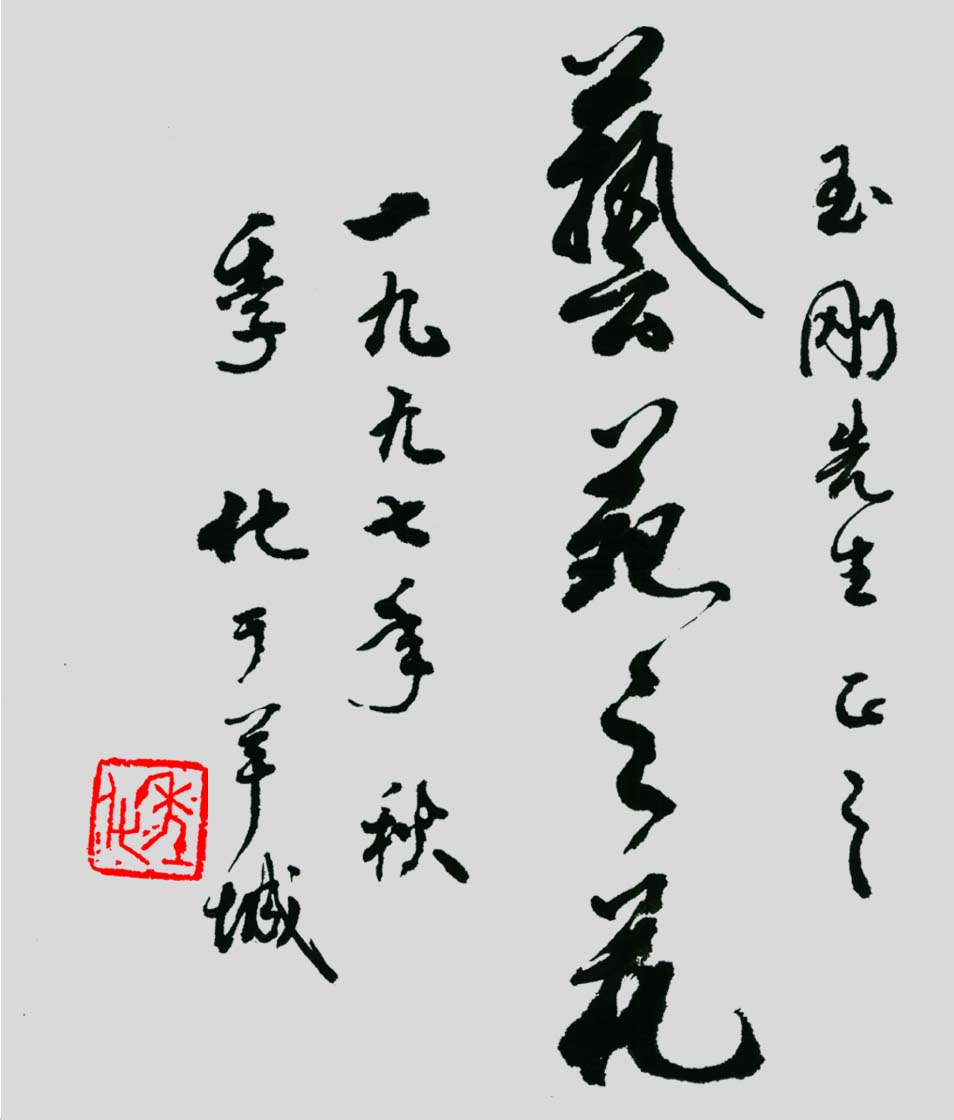 玉剛先生正之
藝苑之花
一九九七年秋
季 化于羊城